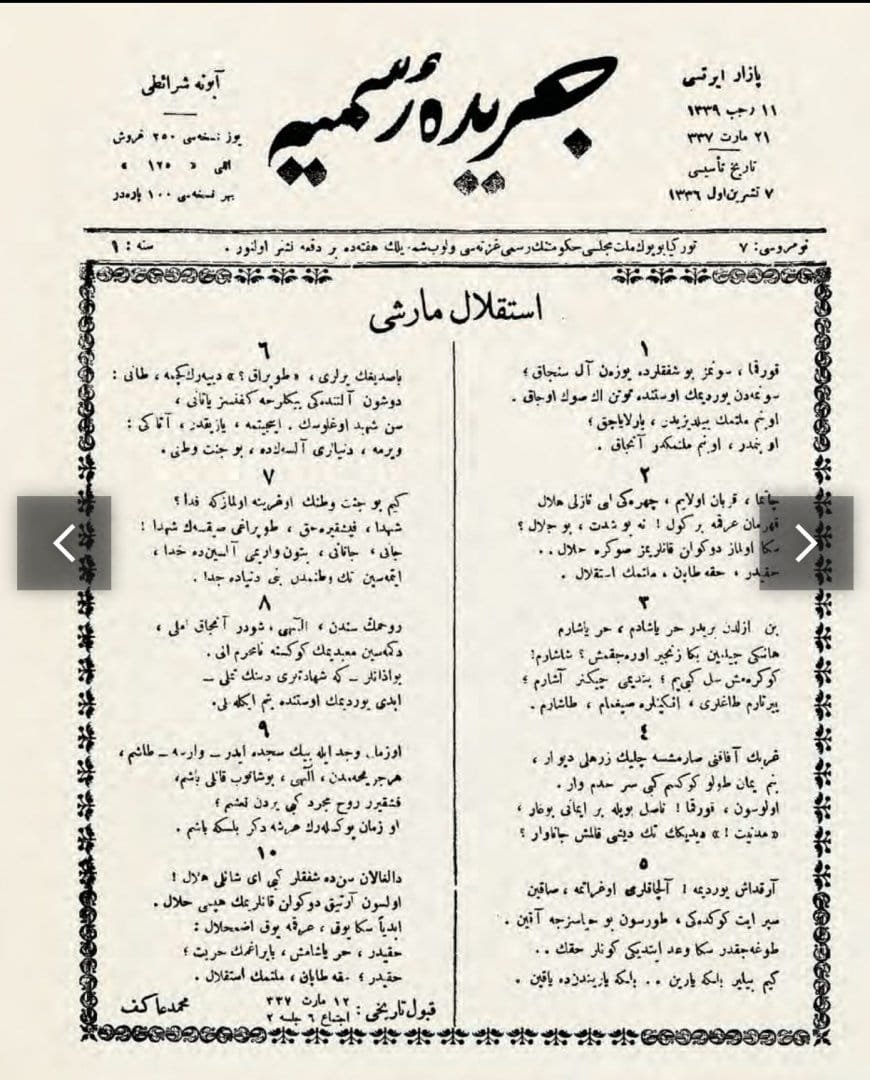 پازار ایرتسی
١١ رجب ١٣٣٩
٢١ مارت ٣٣٧
تاریخ تأسیسی
٧ تشرین‌اول ١٣٣٦
جریدۀ رسمیه
آبونه شرائطی
یوز نسخه‌سی ٢٥٠ غروش
اللی « ١٢٥ »
بهر نسخه‌سی ١٠٠ پاره‌در
نومروسی: ٧
تورکیا بویوك ملت مجلسی حکومتنك رسمی غزته‌سی اولوب شمدیلك هفته‌ده بر دفعه نشر اولنور .
سنه : ١
استقلال مارشی
١
قورقما ، سونمز بو شفقلرده یوزەن آل سنجاق ؛
سونمه‌دن یوردیمك اوستنده توتن اك صوك اوجاق .
او بنم ملتمك ییلدیزیدر ، پارلایاجق ؛
او بنمدر ، او بنم ملتمكدر آنجاق .
٢
چاتما ، قربان اولایم ، چهره‌کی ای نازلی هلال
قهرمان عرقمه بر کول ! نه بو شدت ، بو جلال ؟
سکا اولماز دوکولن قانلریمز صوکره حلال . .
حقیدر ، حقه طاپان ، ملتمك استقلال .
٣
بن ازلدن بریدر حر یاشادم ، حر یاشارم
هانکی چیلغین بکا زنجیر اوره‌جقمش ؟ شاشارم!
کوکره‌مش سل کبی‌یم ؛ بندیمی چیکنر آشارم ؛
ییرتارم طاغلری ، انکینلره صیغمام ، طاشارم .
٤
غربك آفاقنی صارمشسه چلیك زرهلی دیوار ،
بنم ایمان طولو کوکسم کبی سر حدم وار .
اولوسون ، قورقما ! ناصل بویله بر ایمانی بوغار ،
« مدنیت ! » دیدیکك تك دیشی قالمش جاناوار ؟
٥
آرقداش یوردیمه ! آلچاقلری اوغراتمه ، صاقین
سپر ایت کوکده‌کی ، طورسون بو حیاسزجه آقین .
طوغه‌جقدر سکا وعد ایتدیکی کونلر حقك . .
کیم بیلیر بلکه یارین . . بلکه یاریندن‌ده یاقین .
٦
باصدیغك یرلری ، « طوپراق ؟ » دییه‌رك کچمه ، طانی :
دوشون آلتنده‌کی بیکلرجه کفنسز یاتانی ،
سن شهید اوغلوسك . اینجیتمه ، یازیقدر ، آتاکی :
ویرمه ، دنیالری آلسه‌کده ، بو جنت وطنی .
٧
کیم بو جنت وطنك اوغرینه اولمازکه فدا ؟
شهدا ، فیشقیره‌جق ، طوپراغی صیقسه‌ك شهدا !
جانی ، جانانی ، بتون واریمی آلسین‌ده خدا ،
ایتمه‌سین تك وطنمدن بنی دنیاده جدا .
٨
روحمك سندن ، الٓهی ، شودر آنجاق املی ،
دکمه‌سین معبدیمك کوکسنه نامحرم الی .
بو اذانلر ــ که شهادتلری دینك تملی ــ
ابدی یوردیمك اوستنده بنم ایکله‌لی .
٩
او زمان وجد ایله بیك سجده ایدر ــ وارسه ــ طاشم ،
هر جریحه‌مدن ، الٓهی ، بوشانوب قانلی یاشم،
فشقیرر روح مجرد کبی یردن نعشم ؛
او زمان یوکسله‌رك عرشه دکر بلکه باشم .
١٠
دالغالان سن‌ده شفقلر کبی ای شانلی هلال !
اولسون آرتیق دوکولن قانلریمك هپسی حلال .
ابدیاً سکا یوق ، عرقمه یوق اضمحلال :
حقیدر ، حر یاشامش ، بایراغمك حریت ؛
حقیدر ؛ حقه طاپان ، ملتمك استقلال .
قبول تاریخی : ١٢ مارت ٣٣٧
اجتماع ٦ جلسه ٢
محمد عاکف